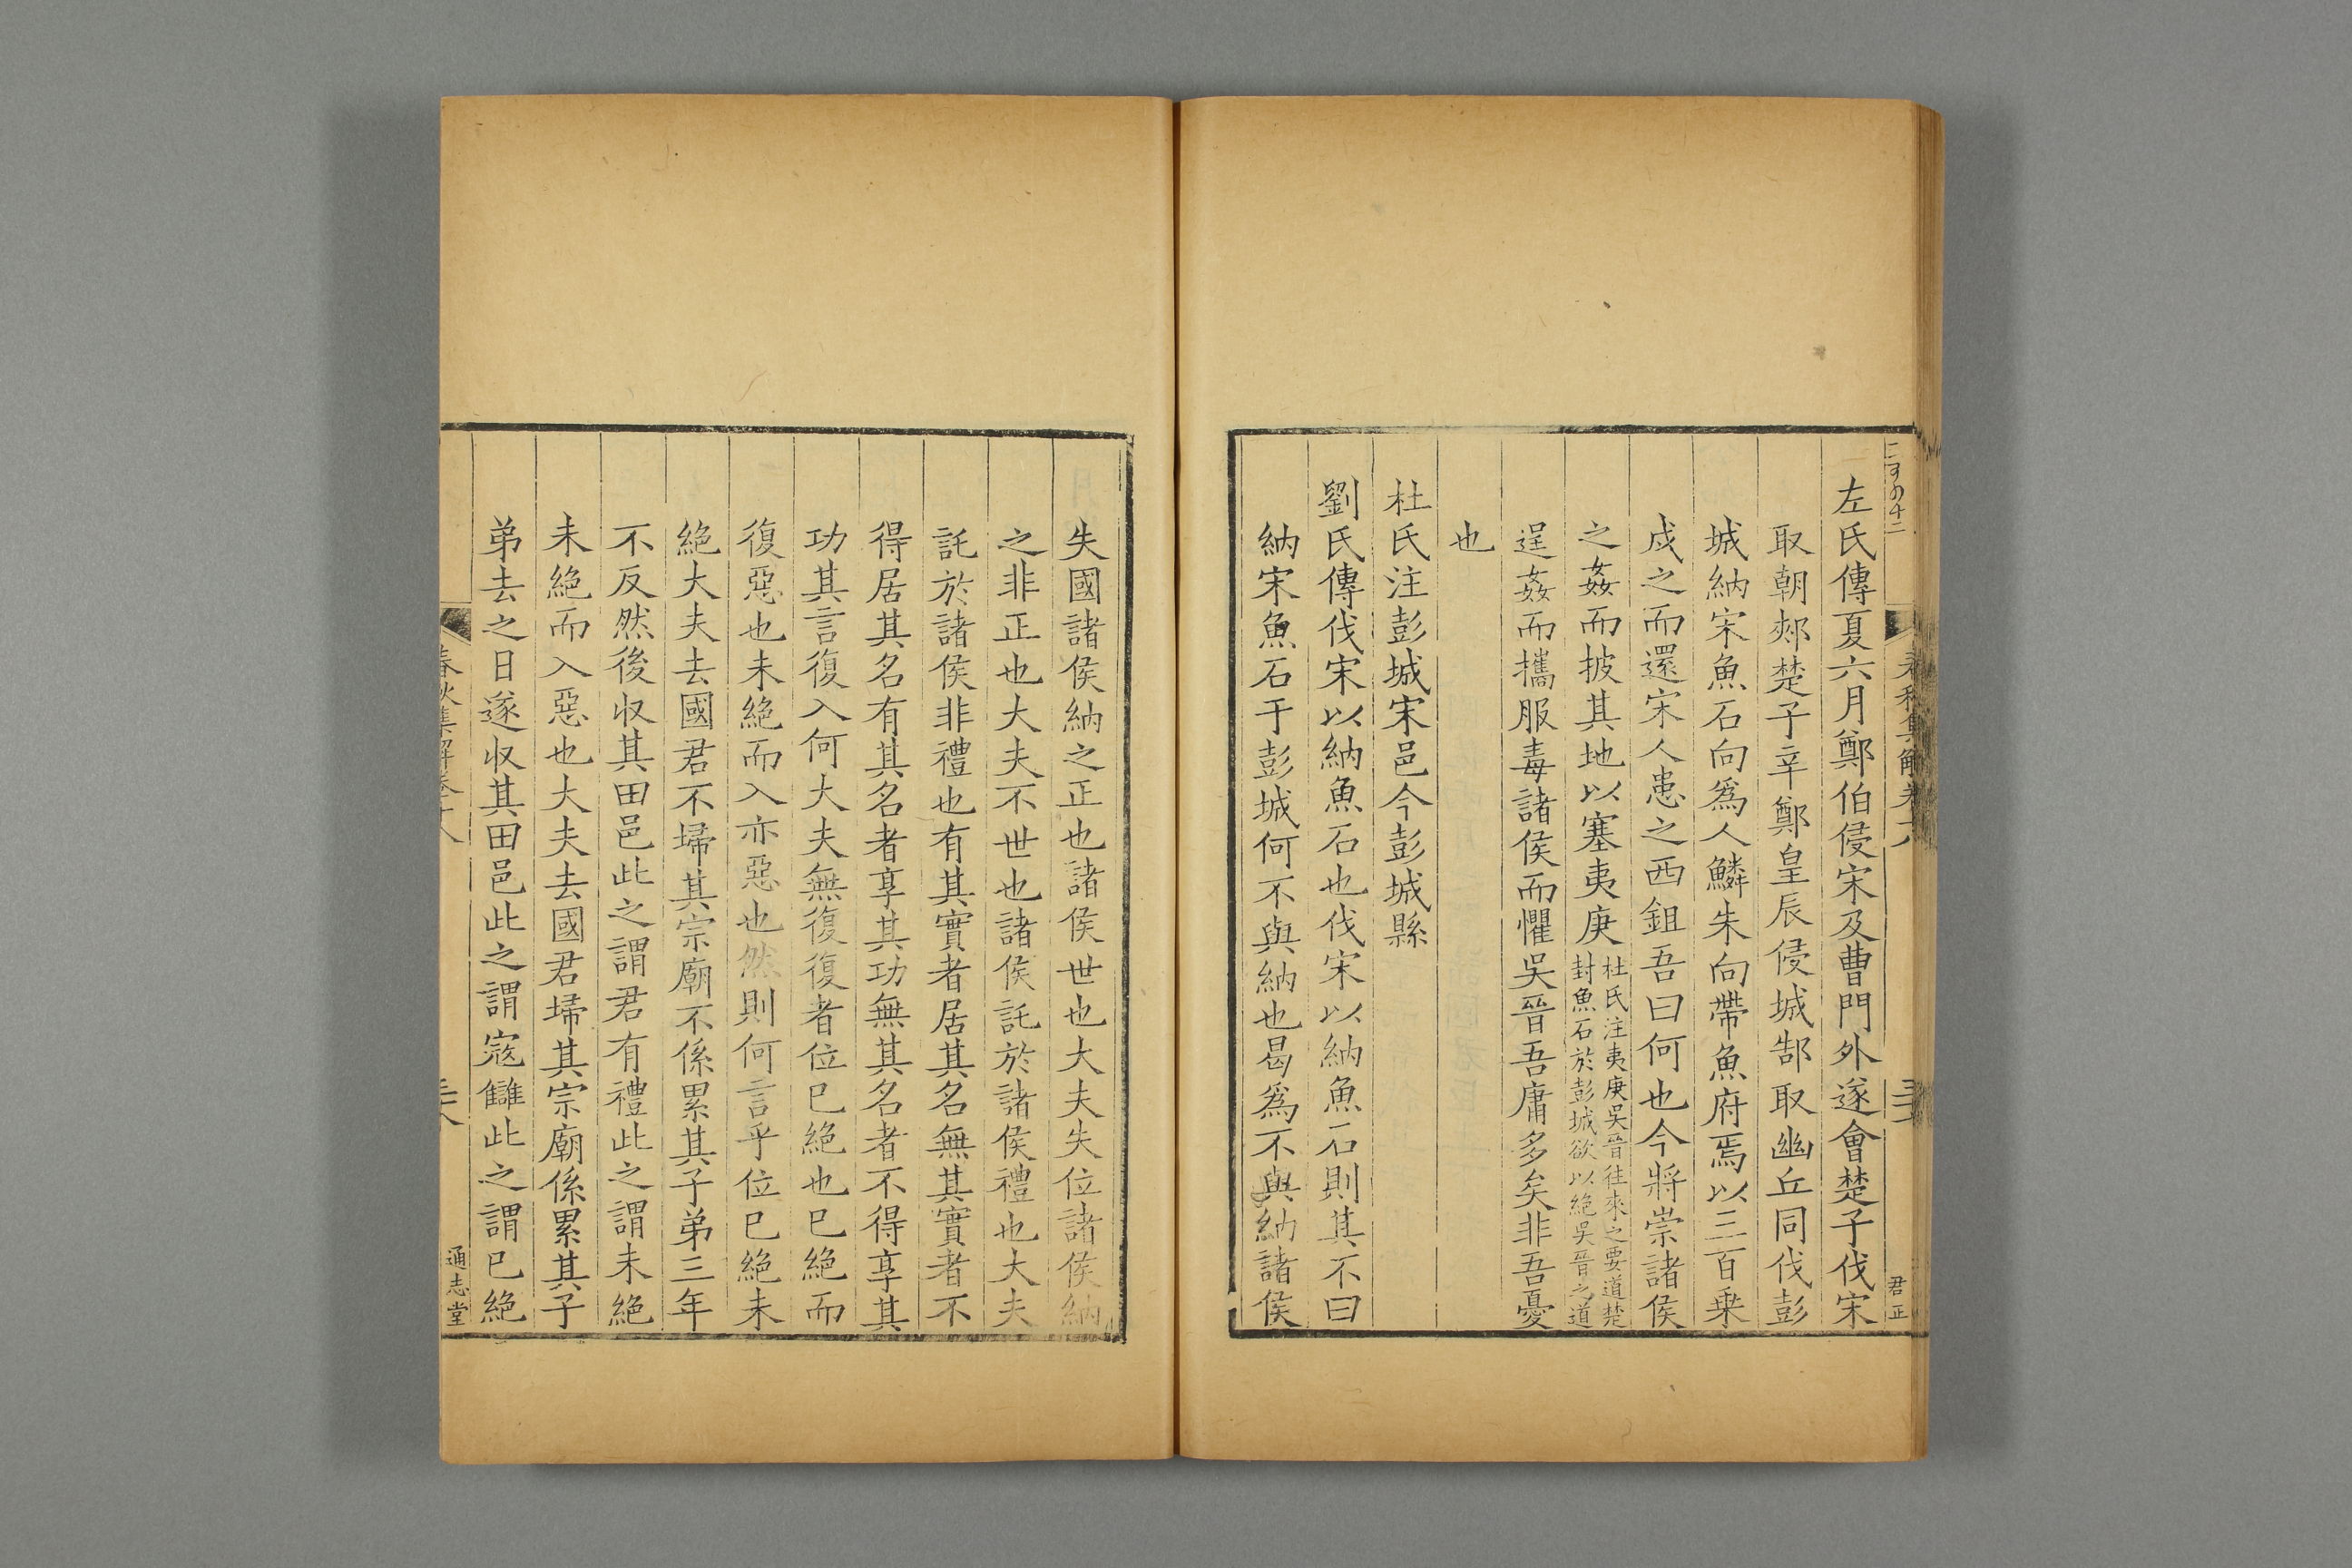 左氏傳夏六月鄭伯侵宋及曹門外遂會楚子伐宋
取朝郟楚子辛鄭皇辰侵城郜取幽丘同伐彭
城納宋魚石向爲人鱗朱向帶魚府焉以三百乗
戍之而還宋人患之西鉏吾曰何也今將崇諸侯
之姦而披其地以塞夷庚
杜氏注夷庚吳晉往來之要道楚
封魚石於彭城欲以絶吳晉之道
逞姦而攜服毒諸侯而懼吳晉吾庸多矣非吾憂
也
杜氏注彭城宋邑今彭城縣
劉氏傳伐宋以納魚石也伐宋以納魚石則其不曰
納宋魚石于彭城何不與納也曷爲不與納諸侯
君正
失國諸侯納之正也諸侯世也大夫失位諸侯納
之非正也大夫不世也諸侯託於諸侯禮也大夫
託於諸侯非禮也有其實者居其名無其實者不
得居其名有其名者享其功無其名者不得享其
功其言復入何大夫無復復者位已絶也已絶而
復惡也未絶而入亦惡也然則何言乎位已絶未
絶大夫去國君不埽其宗廟不係累其子弟三年
不反然後収其田邑此之謂君有禮此之謂未絶
未絶而入惡也大夫去國君埽其宗廟係累其子
弟去之日遂収其田邑此之謂寇讎此之謂已絶
春秋集解卷十八
通志堂